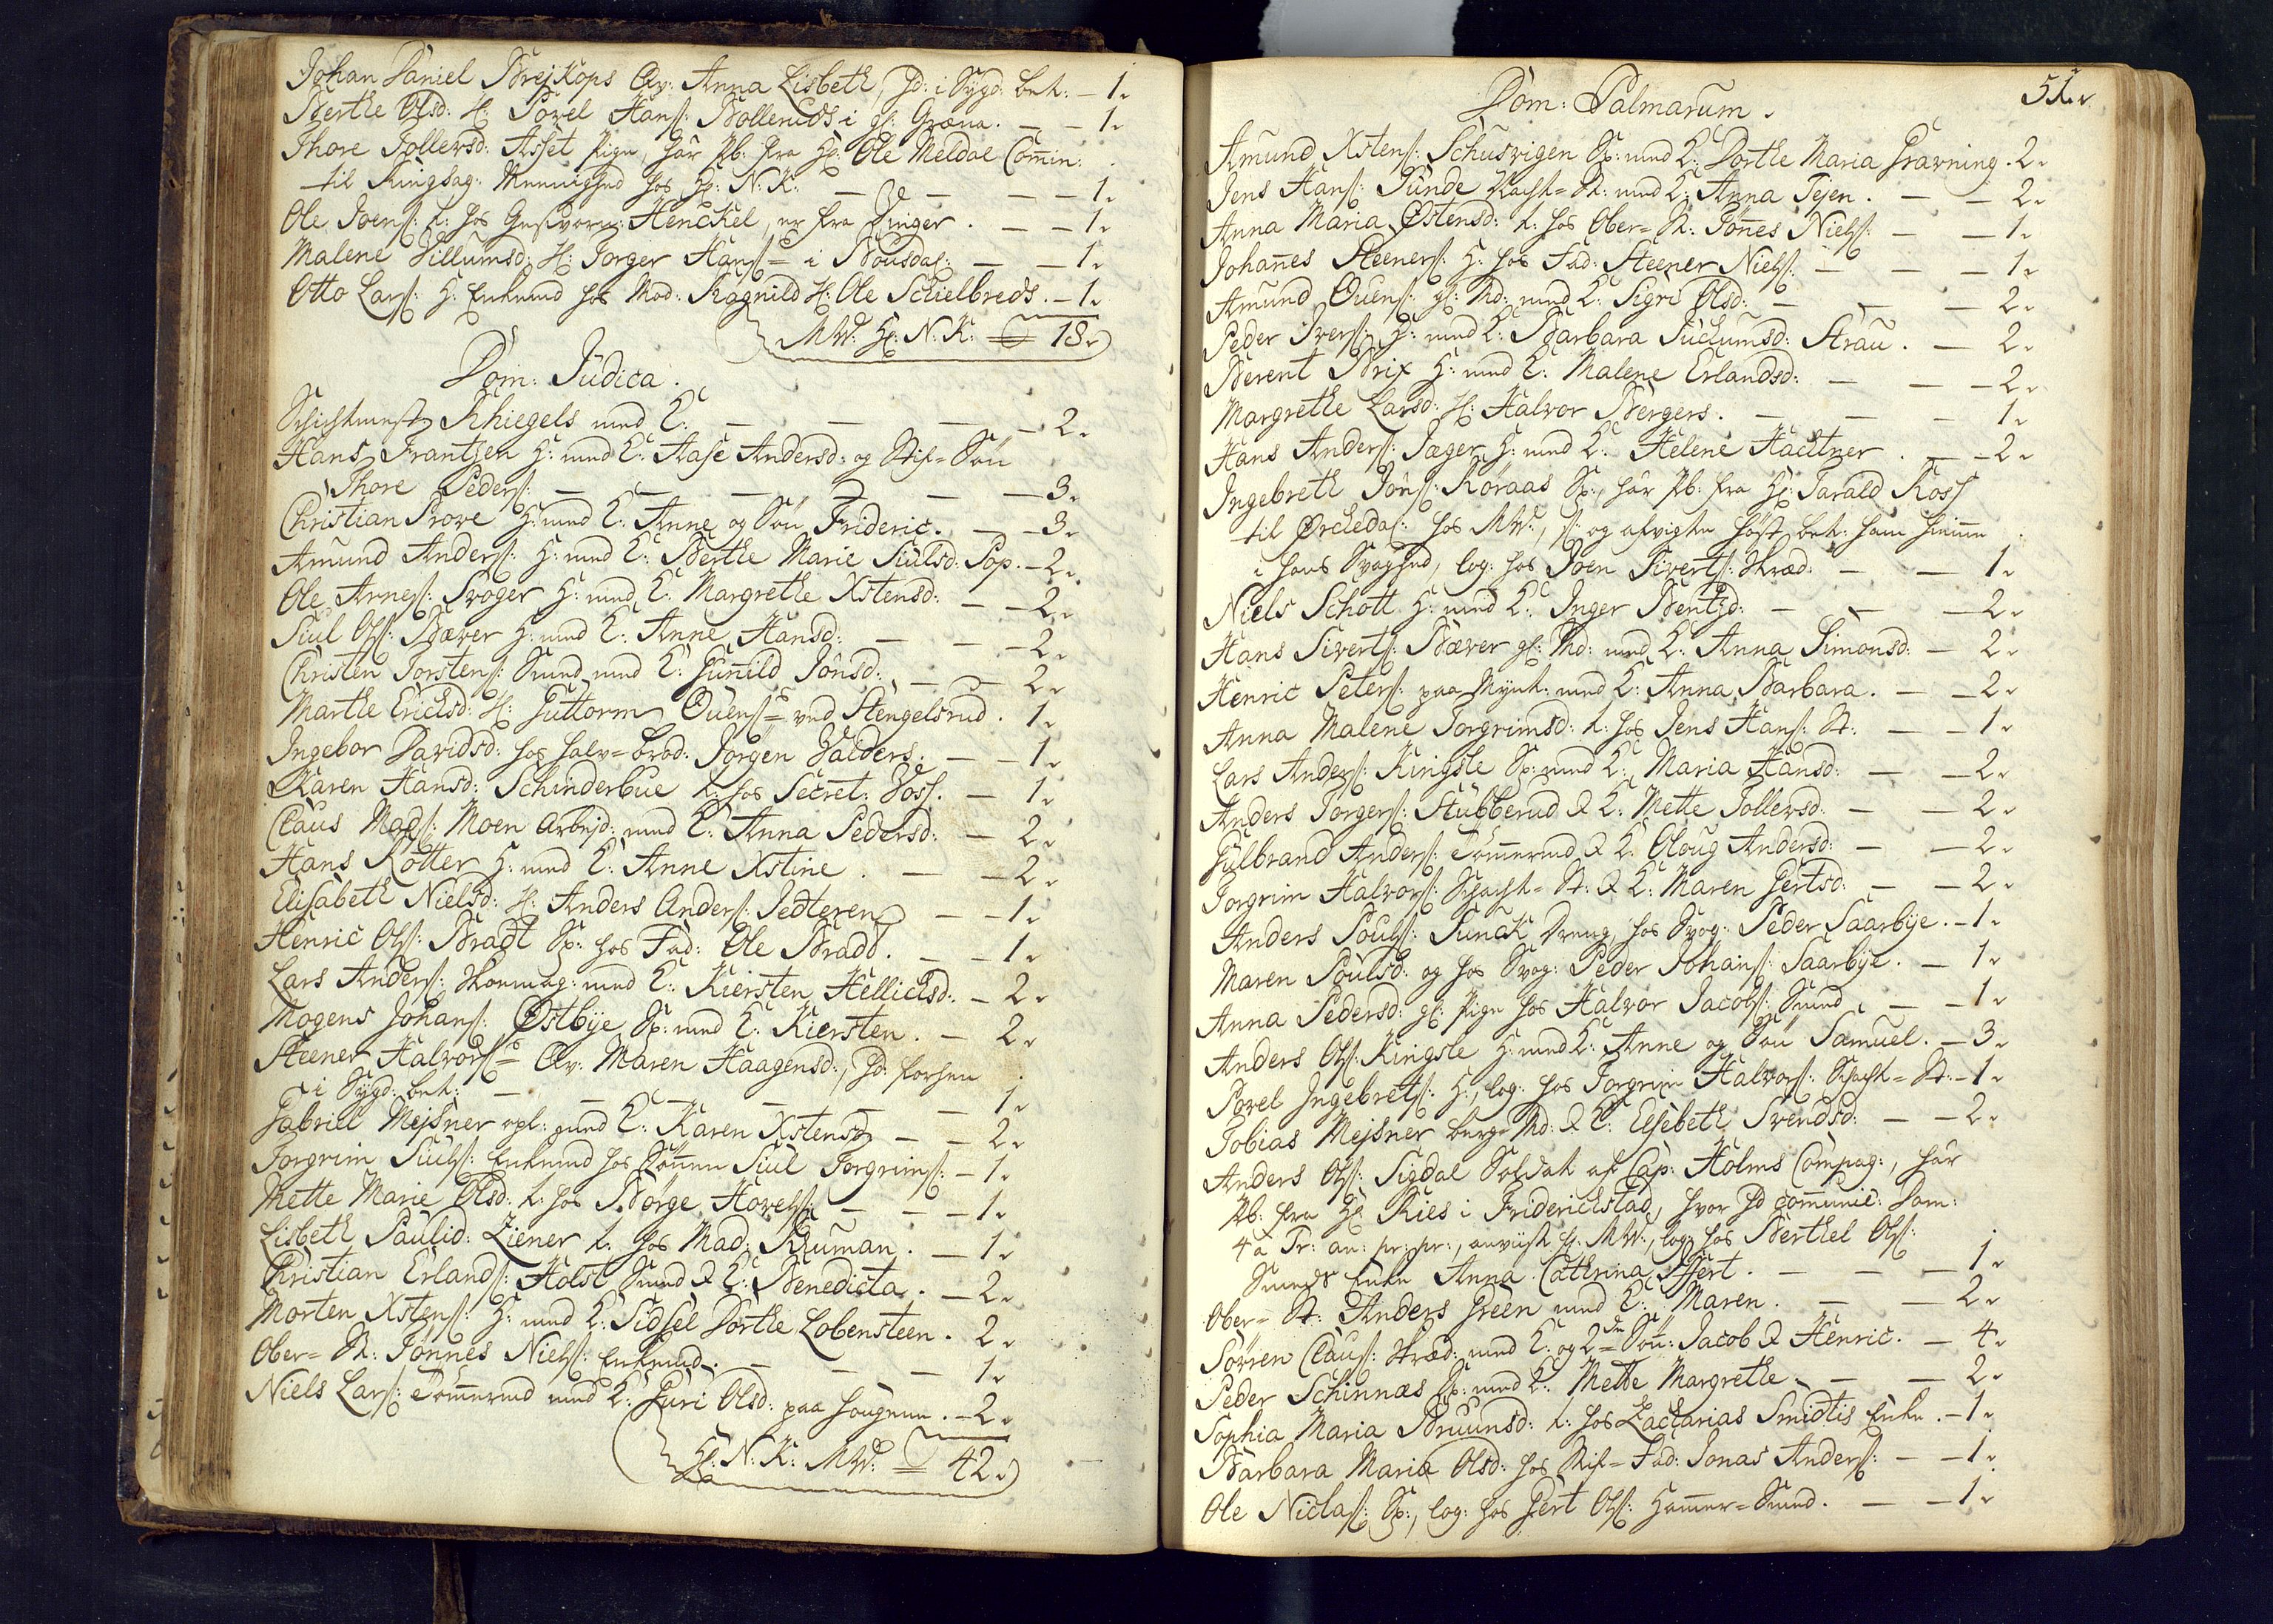 Johan Daniel Brejkops Qv: Anna Lisbeth, hd: i Sygd: bet: — 1.
Berthe Olsd: H: Povel Hans: Bollerud's i gl: Græna. — — 1.
Thore Tollewsd: Aset Pige, hâr Pb: fra Hr: Ole Meldal Com̄in:
til Ringsag: Menighed hos Hr: N: K: — — — 1.
Ole Joens: t: hos Gesvorn: Henckel, er fra Vinger. — — 1.
Malene Villumsd: H: Torger Hans: = s i Bousdal: — — 1.
Otto Lars: H: Enkemd hos Mod: Ragnild H: Ole Schielbreds. — 1.
MW: Hr: N: K: = 18.
Dom: Judica.
Schichtmest: Schiegels med K: — — — 2.
Hans Frantzen H: med K: Aase Andersd: og Stif-Sön
Thore Peders: — — — — 3.
Christian Prove H: med K: Anne og Sön Frideric. — — 3.
Amund Anders: H: med K: Berthe Marie Siulsd: Pop. — 2.
Ole Arnes: Svoger H: med K: Margrethe Xstensd: — — 2.
Siul Ols: Bæver H: med K: Anne Hansd: — — 2.
Christen Torstens: Smed med K: Gun̄ild Jonsd: — — 2.
Marthe Ericksd: H: Guttorm Ouens: = s ved Stengelsrud. 1.
Ingebor Davidsd: hos halv-brod: Jörgen Valders. — — 1.
Karen Hansd: Schinderbue t: hos Secret: Voss. — 1.
Claus Mads: Moen Arbejd: med K: Anna Pedersd: — 2.
Hans Rötter H: med K: Anne Xstine. — — 2.
Elisabeth Nielsd: H: Anders Anders: Jedteren — — 1.
Henric Ols: Bradt Sp: hos Fad: Ole Bradt. — — 1.
Lars Anders: Skoemag: med K: Kiersten Hellicksd: — 2.
Mogens Johans: Østbye Sp: med K: Kiersten. — 2.
Steener Halvors: = s Qv: Maren Haagensd:, hd: forhen
i Sygd: bet: — — — — — 1.
Gabriel Mejsner opl: med K: Karen Xstensd — — 2.
Torgrim Siuls: Enkemd hos Sön̄en Siul Torgrims: — 1.
Mette Marie Olsd: t: hos Börge Hovels: — — 1.
Lisbeth Paulid: Ziener t: hos Mad: Bruman. — 1.
Christian Erlands: Holst Smed & K: Benedicta. — 2.
Morten Xstens: H: med K: Sidsel Dorthe Lobensteen. 2.
Ober-St: Jön̄es Niels: Enkemd. — — — 1.
Niels Lars: Töm̄ermd med K: Guri Olsd: paa Hougene. — 2.
Hr: N: K: MW: = 42.
51.
Dom: Palmarum.
Amund Xstens: Schusvigen Sp: med K: Dorthe Maria Gravning. 2.
Jens Hans: Sunde Nacht-St: med K: Anna Tejen. — — 2.
Anna Maria Østensd: t: hos Ober-St: Jön̄es Niels: — — 1.
Johan̄es Steeners: H: hos Fad: Steener Niels: — — 1.
Amund Ouens: gl: Md: med K: Sigri Olsd: — — 2.
Peder Ivers: H: med K: Barbara Sucumsd: Strau. — 2.
Berent Brix H: med K: Malene Erlandsd: — — 2.
Margrethe Larsd: H: Halvor Bergers. — — — 1.
Hans Anders: Jæger H: med K: Helene Hachtner. — — 2.
Ingebreth Jöns: Röraas Sp:, hâr Pb: fra Hr: Tarald Ross
til Orckedal: hos MW:, og afvigte Höst bet: ham hiem̄e
i hans Svaghed, log: hos Joen Siverts: Skræd: — — 1.
Niels Schott H: med K: Inger Bentzd: — — 2.
Hans Siverts: Bæver gl: Md: med K: Anna Simonsd: — 2.
Henric Peters: paa Mynt: med K: Anna Barbara. — — 2.
Anna Malene Torgrimsd: t: hos Jens Hans: St: — — 1.
Lars Anders: Ringsle Sp: med K: Maria Hansd: — — 2.
Anders Torgers: Stubberud & K: Mette Tollewsd: — — 2.
Gulbrand Anders: Töm̄ermd & K: Oloug Andersd: — — 2.
Torgrim Halvors: Schacht-St: & K: Maren Gertsd: — — 2.
Anders Pouls: Funck Dreng, hos Svog: Peder Saarbye. — 1.
Maren Poulsd: og hos Svog: Peder Johans: Saarbye. — 1.
Anna Pedersd: gl: Pige hos Halvor Jacobs: Smed. — — 1.
Anders Ols: Ringsle H: med K: Anne og Sön Samuel. — 3.
Povel Ingebrets: H:, log: hos Torgrim Halvors: Schacht-St: — 1.
Tobias Mejsner berg-Md: & K: Elsebeth Svendsd: — — 2.
Anders Ols: Sigdal Soldat af Cap: Holms Compag:, hâr
Pb: fra Hr: Ries i Friderichstad, hvor hd com̄unic: Dom:
4ta Tr: an: pr: pr:, anviist Hr: MW:, log: hos Berthel Ols:
Smeds Enke Anna Cathrina Effert. — — — 1.
Ober-St: Anders Green med K: Maren. — — 2.
Sören Claus: Skræd: med K: og 2de Sön: Jacob & Henric. — 4.
Peder Schinnæs Sp: med K: Mette Margrethe. — — 2.
Sophia Maria Bruunsd: t: hos Zacharias Smidtis Enke. — 1.
Barbara Maria Olsd: hos Stif-Fad: Jonas Anders: — — 1.
Ole Niclas: Sp:, log: hos Gert Ols: Ham̄er-Smed. — — 1.